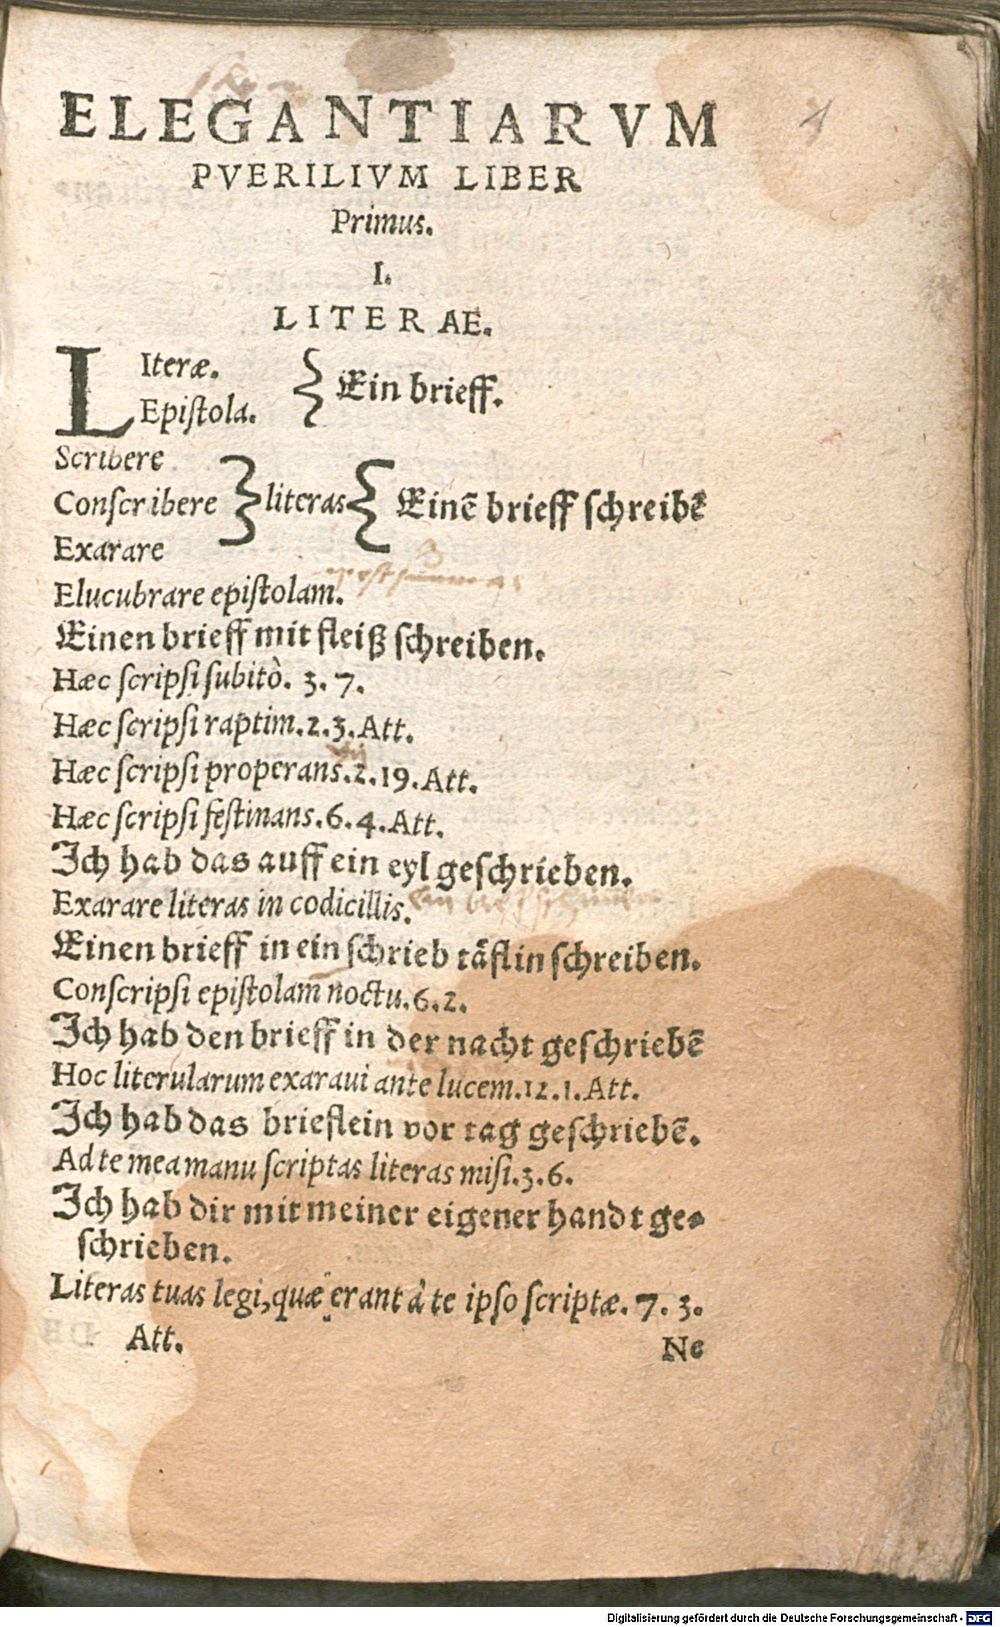 ELEGANTIARVM
PVERILIVM LIBER
Primus.
I.
LITERAE.
LIteræ.
Epiſtola. } Ein brieff.
Scribere
Conſcribere } literas { Einē brieff ſchreibē
Exarare
Elucubrare epiſtolam.
Einen brieff mit fleiß ſchreiben.
Hæc ſcripſi ſubitò. 3. 7.
Hæc ſcripſi raptim. 2. 3. Att.
Hæc ſcripſi properans. 2. 19. Att.
Hæc ſcripſi feſtinans. 6. 4. Att.
Ich hab das auff ein eyl geſchrieben.
Exarare literas in codicillis.
Einen brieff in ein ſchrieb taͤflin ſchreiben.
Conſcripſi epiſtolam noctu. 6. 2.
Ich hab den brieff in der nacht geſchriebē
Hoc literularum exaraui ante lucem. 12. 1. Att.
Ich hab das brieflein vor tag geſchriebē.
Ad te mea manu ſcriptas literas miſi. 3. 6.
Ich hab dir mit meiner eigener handt ge⸗
ſchrieben.
Literas tuas legi, quæ erant à te ipſo ſcriptæ. 7. 3.
Att.
Ne
Digitalisierung gefördert durch die Deutsche Forschungsgemeinschaft - DFG